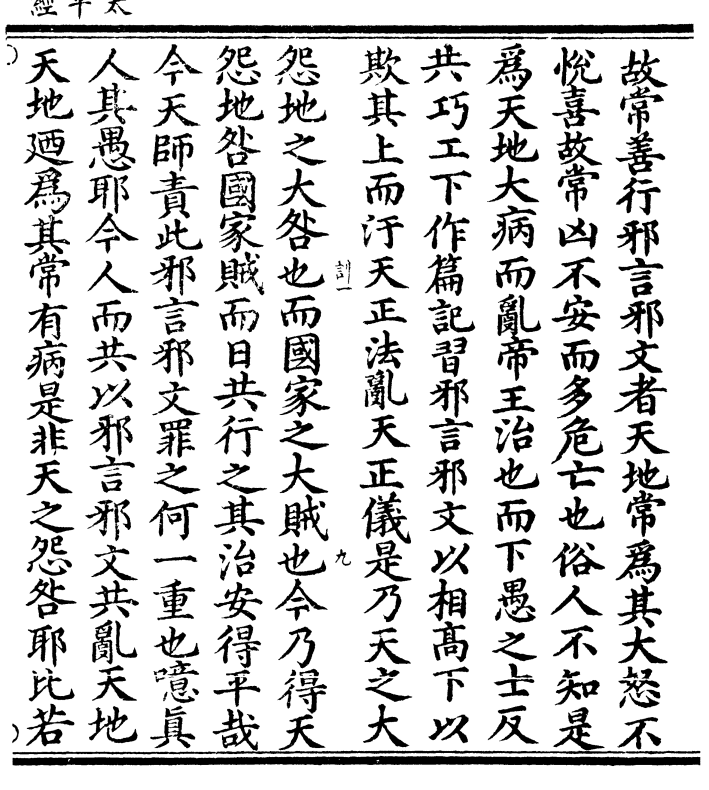 太平經
故常善行邪言邪文者天地常爲其大怒不
悅喜故常凶不安而多危亡也俗人不知是
爲天地大病而亂帝王治也而下愚之士反
共巧工下作篇記習邪言邪文以相高下以
欺其上而汙天正法亂天正儀是乃天之大
訓一 九
怨地之大咎也而國家之大賊也今乃得天
怨地咎國家賊而日共行之其治安得平哉
今天師責此邪言邪文罪之何一重也噫眞
人其愚耶今人而共以邪言邪文共亂天地
天地廼爲其常有病是非天之怨咎耶比若